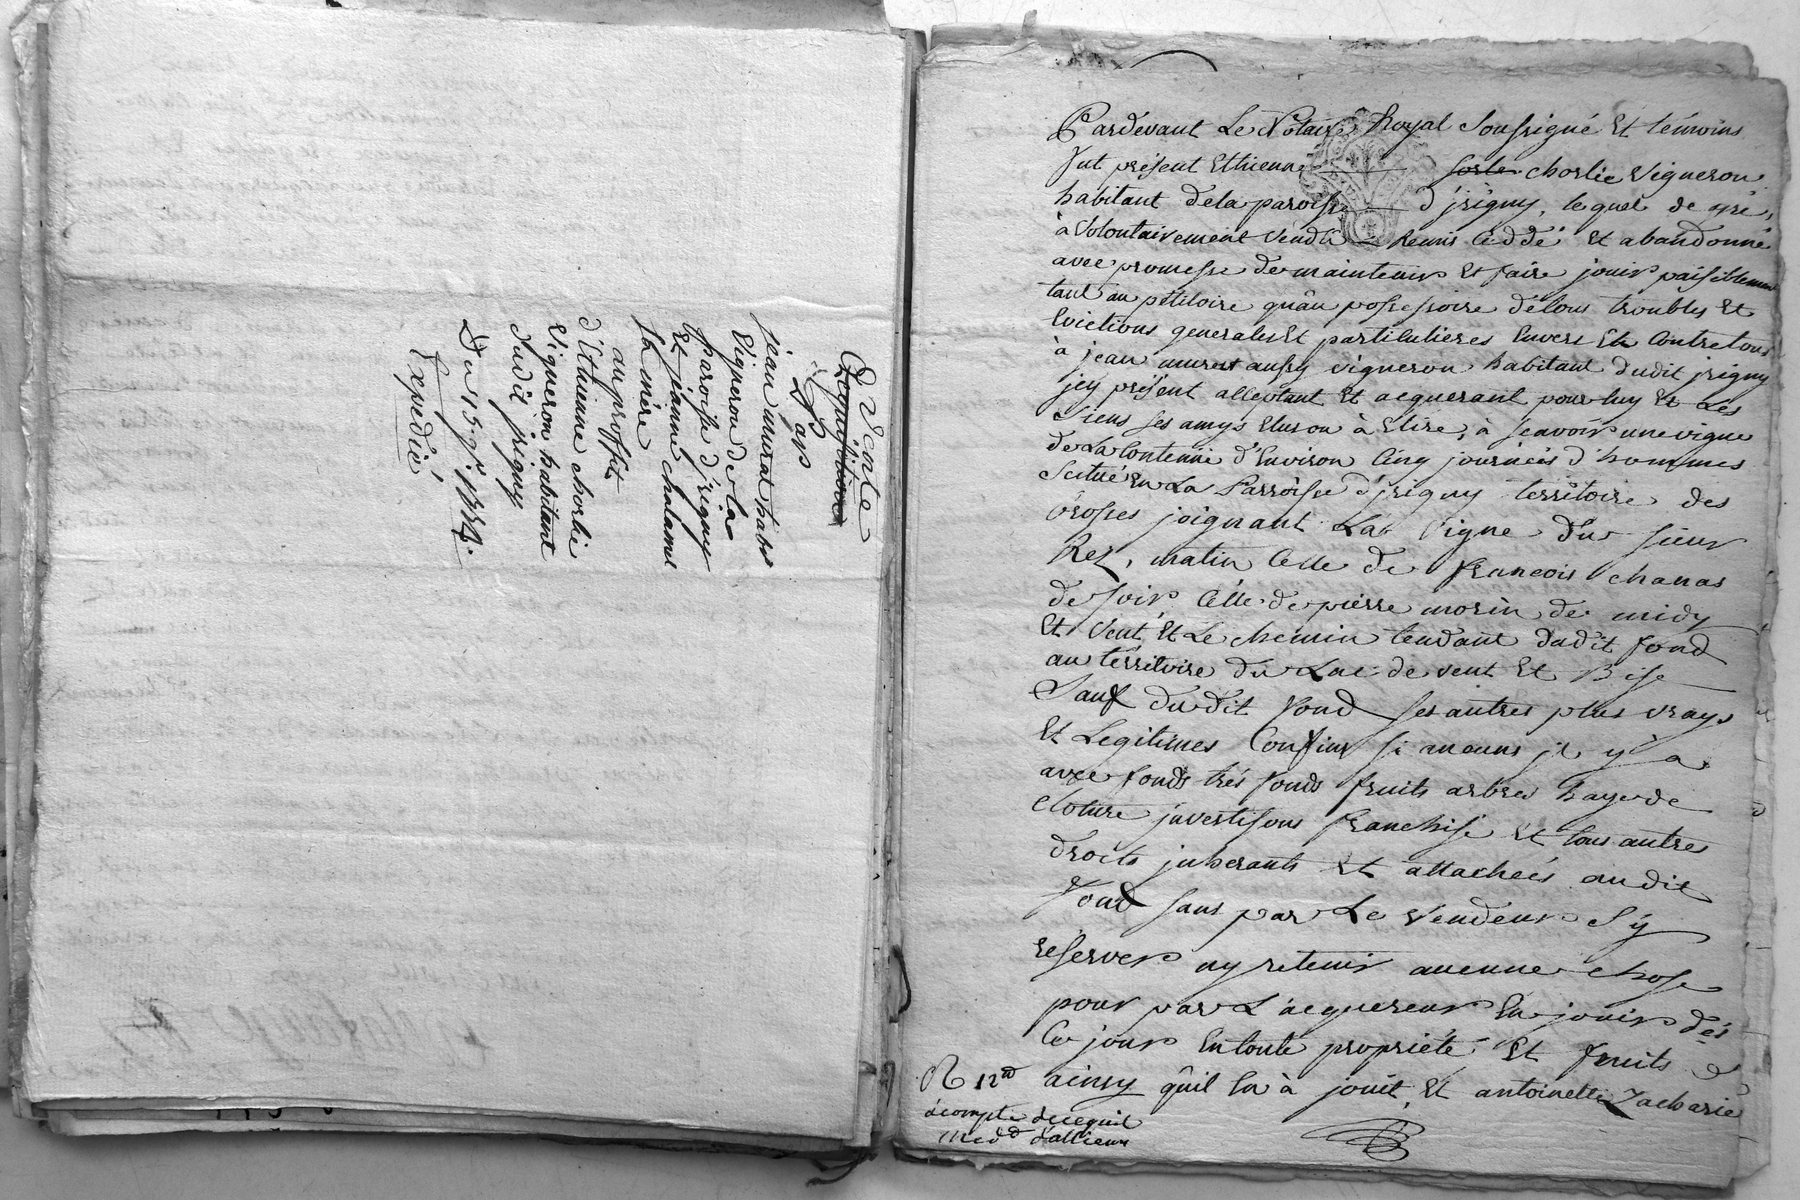 vente
Acquisition
Par
jean murat habt
Vigneron de la
paroisse d'jrigny
Et jeanne chalamel
sa mère
au proffit
d'Ethienne chorlie
Vigneron habitant
dudit jrigny
Du 15
Expedié
Pardevant Le Notaire Royal Soussigné Et témoins
fut présent Ethienne chorlie Vigneron
habitant de la paroisse d'jrigny, lequel de gré,
à Volontairement Vendu Remis Ceddé Et abandonné
avec promesse de maintenir Et faire jouir paisiblement
tant au pétitoire qu'au possessoire de tous troubles Et
Evictions generales Et particulieres Envers Et Contre tous
à jean murat aussy vigneron habitant dudit jrigny
jcy présent acceptant Et acquerant pour luy Et Les
Siens ses amys Elus ou à Elire, à sçavoir une vigne
de La Contenue d'Environ Cinq journées d'hommes
Scitué En La Parroisse d'jrigny territoire des
brosses joignant La Vigne du sieur
Rey, matin Celle de françois chanas
de soir Celle de pierre morin de midy
Et Vent, Et Le chemin tendant dudit fond
au territoire du Lac de vent Et Bise
Sauf dudit fond ses autres plus vrays
Et Legitimes Confins si aucuns jl y a
avec fonds très fonds fruits arbres haye de
cloture jnvestisons franchise Et tous autres
droits jnherants Et attachés audit
fond sans par Le Vendeur S'y
reserver ny retenir aucune chose
pour par L'acquereur En jouir dés
Ce jour En toute propriété Et fruits
ainsy qu'il En à jouit, Et antoinette Zacharie
R 12
acompte